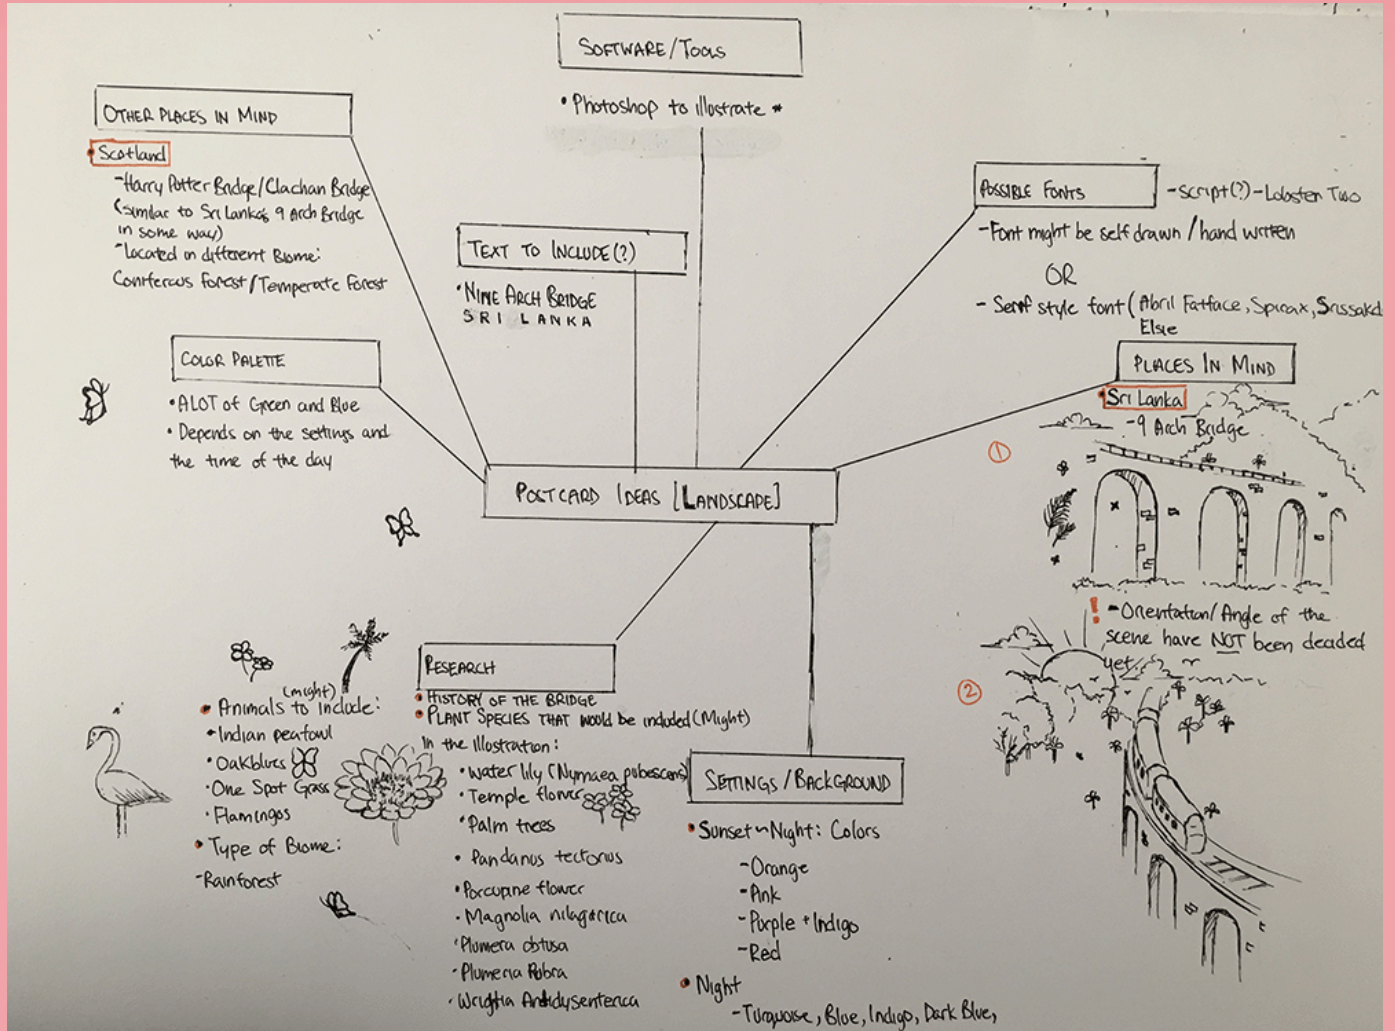 SOFTWARE/TOOLS
• Photoshop to illustrate *
OTHER PLACES IN MIND
• Scotland
- Harry Potter Bridge/Clachan Bridge
(similar to Sri Lanka's 9 Arch Bridge
in some way)
- Located in different Biome:
Coniferous Forest/Temperate Forest
TEXT TO INCLUDE(?)
• NINE ARCH BRIDGE
SRI LANKA
POSSIBLE FONTS
- script(?) - Lobster Two
- Font might be self drawn / hand written
OR
- Serif style font (Abril Fatface, Spirax, Srissakd
Elsie
COLOR PALETTE
• ALOT of Green and Blue
• Depends on the settings and
the time of the day
PLACES IN MIND
• Sri Lanka
- 9 Arch Bridge
1
POSTCARD IDEAS [LANDSCAPE]
! - Orientation/Angle of the
scene have NOT been decided
yet.
2
RESEARCH
• HISTORY OF THE BRIDGE
• PLANT SPECIES THAT would be included (Might)
In the illustration:
• Water lily (Nymaea pubescens)
• Temple flower
• Palm trees
• Pandanus tectorius
• Porcupine flower
• Magnolia nilagirica
• Plumera obtusa
• Plumeria Rubra
• Wrightia Antidysenterica
(might)
• Animals to include:
• Indian peafowl
• Oakblues
• One Spot Grass
• Flamingos
• Type of Biome:
- Rainforest
SETTINGS/BACKGROUND
• Sunset ~ Night: Colors
- Orange
- Pink
- Purple + Indigo
- Red
• Night
- Turquoise, Blue, Indigo, Dark Blue,